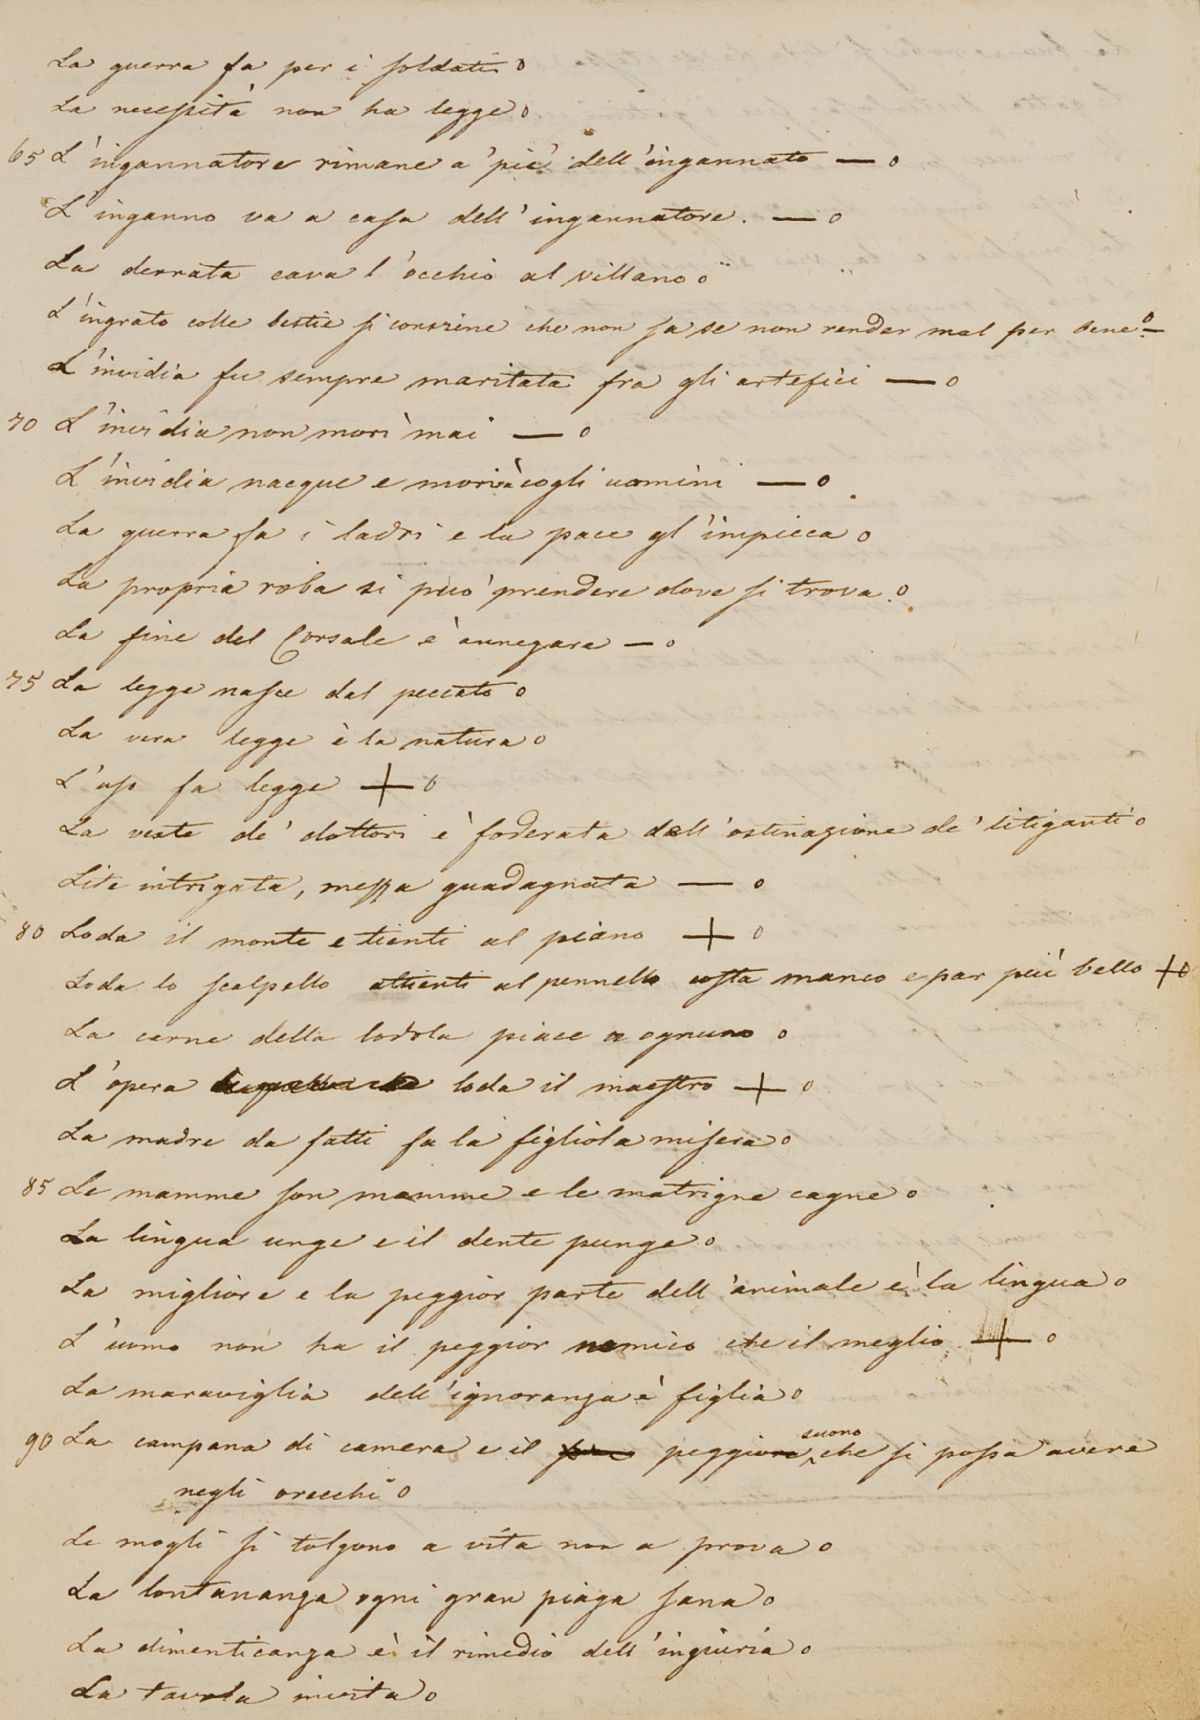 La guerra fa per i soldati o
La necessità non ha legge o
65 L'ingannatore rimane a' piè dell'ingannato — o
L'inganno va a casa dell'ingannatore. — o
La derrata cava l'occhio al villano o
L'ingrato colle bestie si convine che non sa se non render mal per bene o —
L'invidia fu sempre maritata fra gli artefici — o
70 L'invidia non morì mai — o
L'invidia nacque e morirà cogli uomini — o
La guerra fa i ladri e la pace gl'impicca o
La propria roba si può prendere dove si trova. o
La fine del Corsale è annegare — o
75 La legge nasce dal peccato o
La vera legge è la natura o
L'uso fa legge + o
La veste de' dottori è foderata dell'ostinazione de' litiganti o
Lite intrigata, mezza guadagnata — o
80 Loda il monte e tienti al piano + o
Loda lo scalpello attienti al pennello costa manco e par più bello + o
La carne della lodola piace a ognuno o
L'opera loda il maestro + o
La madre da fatti fa la figliola misera o
85 Le mamme son mamme e le matrigne cagne o
La lingua unge e il dente punge o
La migliore e la peggior parte dell'animale è la lingua o
L'uomo non ha il peggior nemico che il meglio + o
La maraviglia dell'ignoranza è figlia o
90 La campana di camera e il peggiore suono che si possa avere
negli orecchi o
Le mogli si tolgono a vita non a prova o
La lontananza ogni gran piaga sana o
La dimenticanza è il rimedio dell'ingiuria o
La tavola invita o